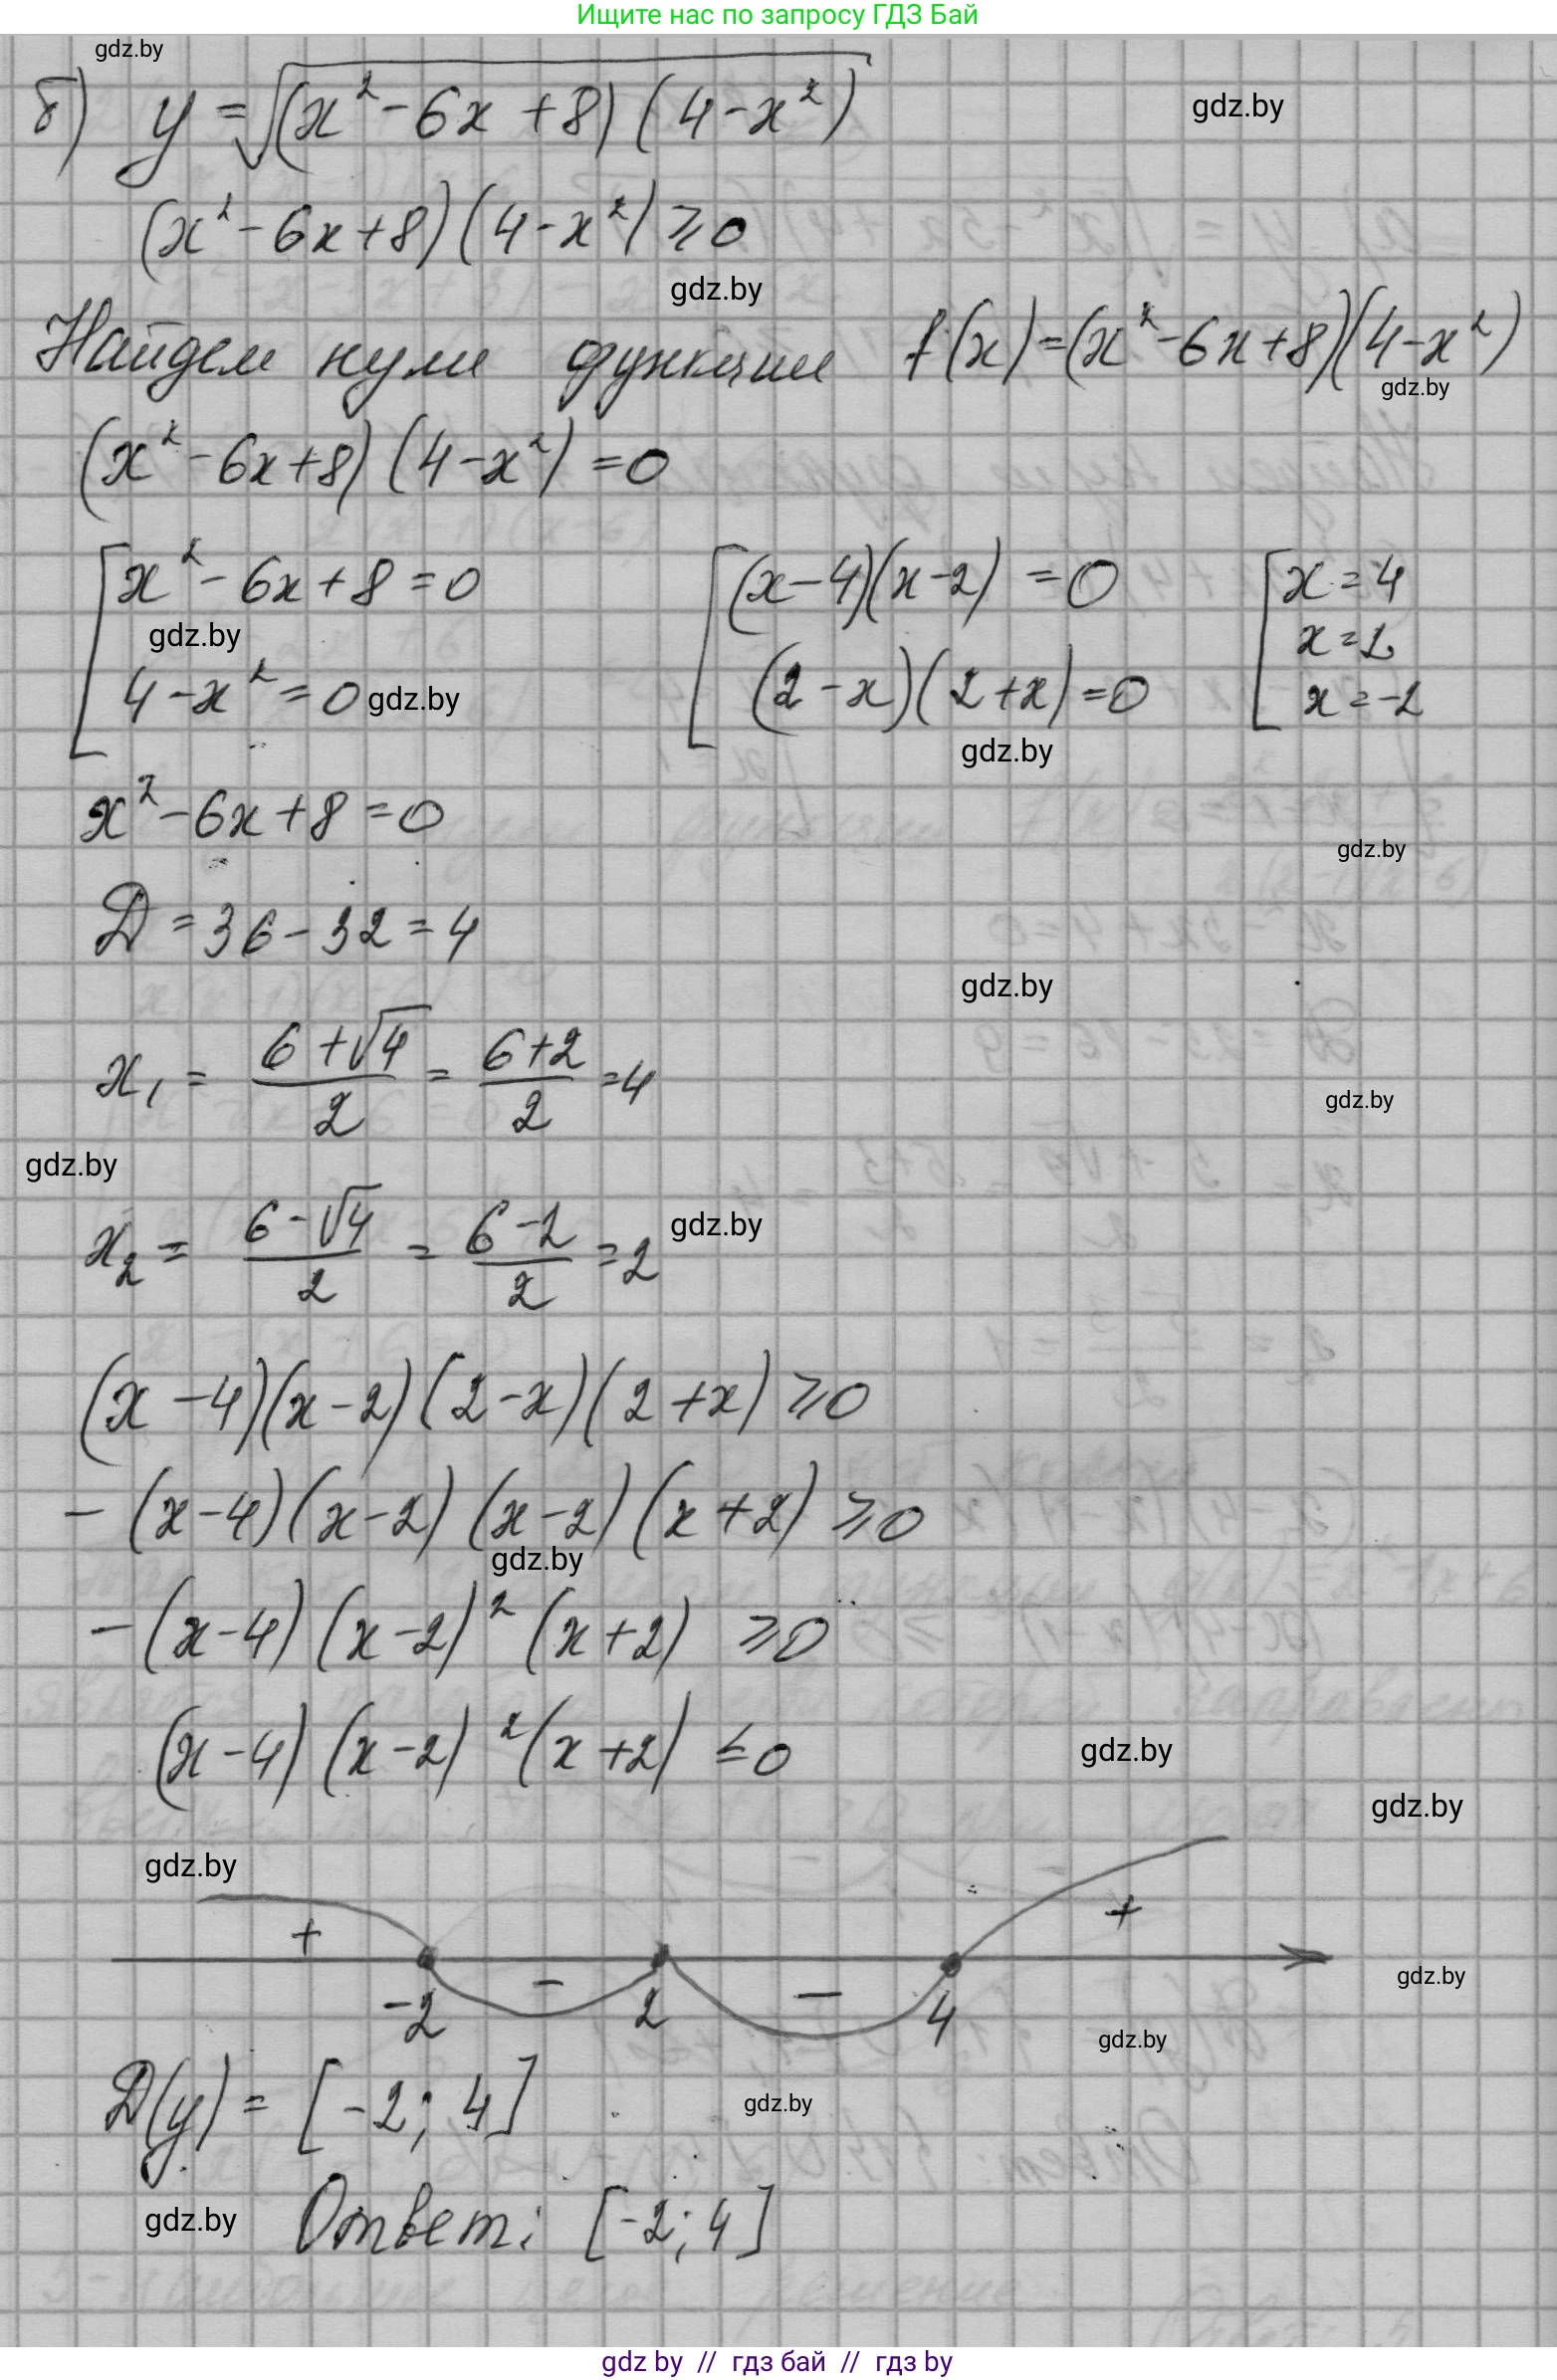 Ищите нас по запросу ГДЗ Бай
gdz.by
б) y = √(x² - 6x + 8)(4 - x²)
gdz.by
(x² - 6x + 8)(4 - x²) ⩾ 0
gdz.by
Найдем нули функции f(x) = (x² - 6x + 8)(4 - x²)
gdz.by
(x² - 6x + 8)(4 - x²) = 0
[ x² - 6x + 8 = 0 [ (x - 4)(x - 2) = 0 [ x = 4
gdz.by x = 2
4 - x² = 0 gdz.by (2 - x)(2 + x) = 0 x = -2
gdz.by
x² - 6x + 8 = 0
gdz.by
D = 36 - 32 = 4
gdz.by
x₁ = (6 + √4)/2 = (6 + 2)/2 = 4
gdz.by
gdz.by
x₂ = (6 - √4)/2 = (6 - 2)/2 = 2 gdz.by
(x - 4)(x - 2)(2 - x)(2 + x) ⩾ 0
- (x - 4)(x - 2)(x - 2)(x + 2) ⩾ 0
gdz.by
- (x - 4)(x - 2)² (x + 2) ⩾ 0
(x - 4)(x - 2)² (x + 2) ≤ 0
gdz.by
gdz.by
gdz.by
+ - - +
-2 2 4
gdz.by
gdz.by
D(y) = [-2; 4]
gdz.by
gdz.by
Ответ: [-2; 4]
gdz by // гдз бай // гдз by